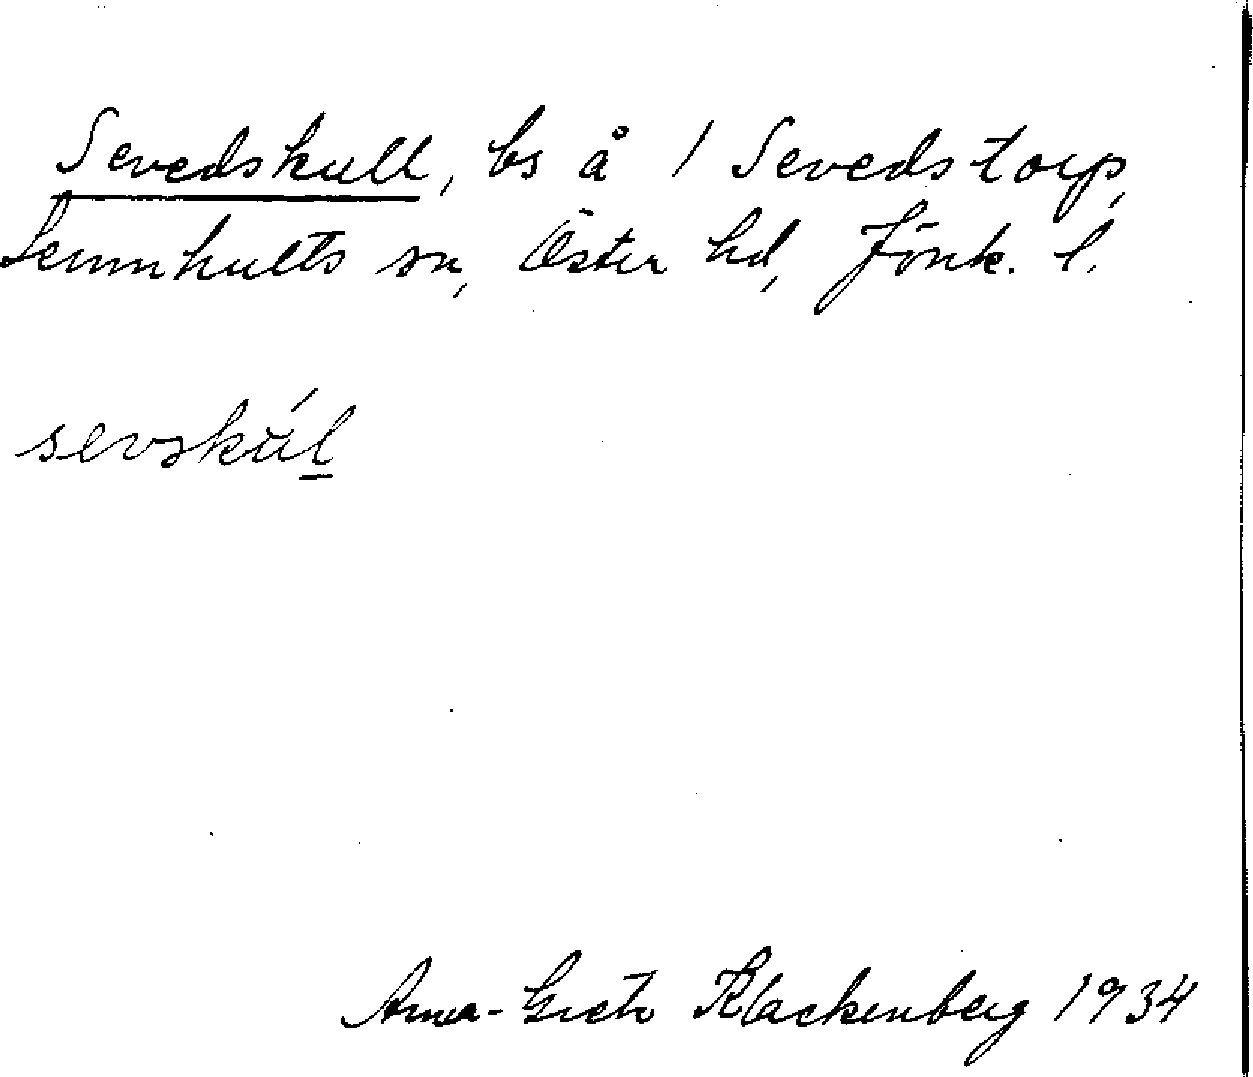 Sevedskull, bs å 1 Sevedstorp,
Lemnhults sn, Öster hd, Jönk. l.
sevskúl
Anna-Greta Klackenberg 1934